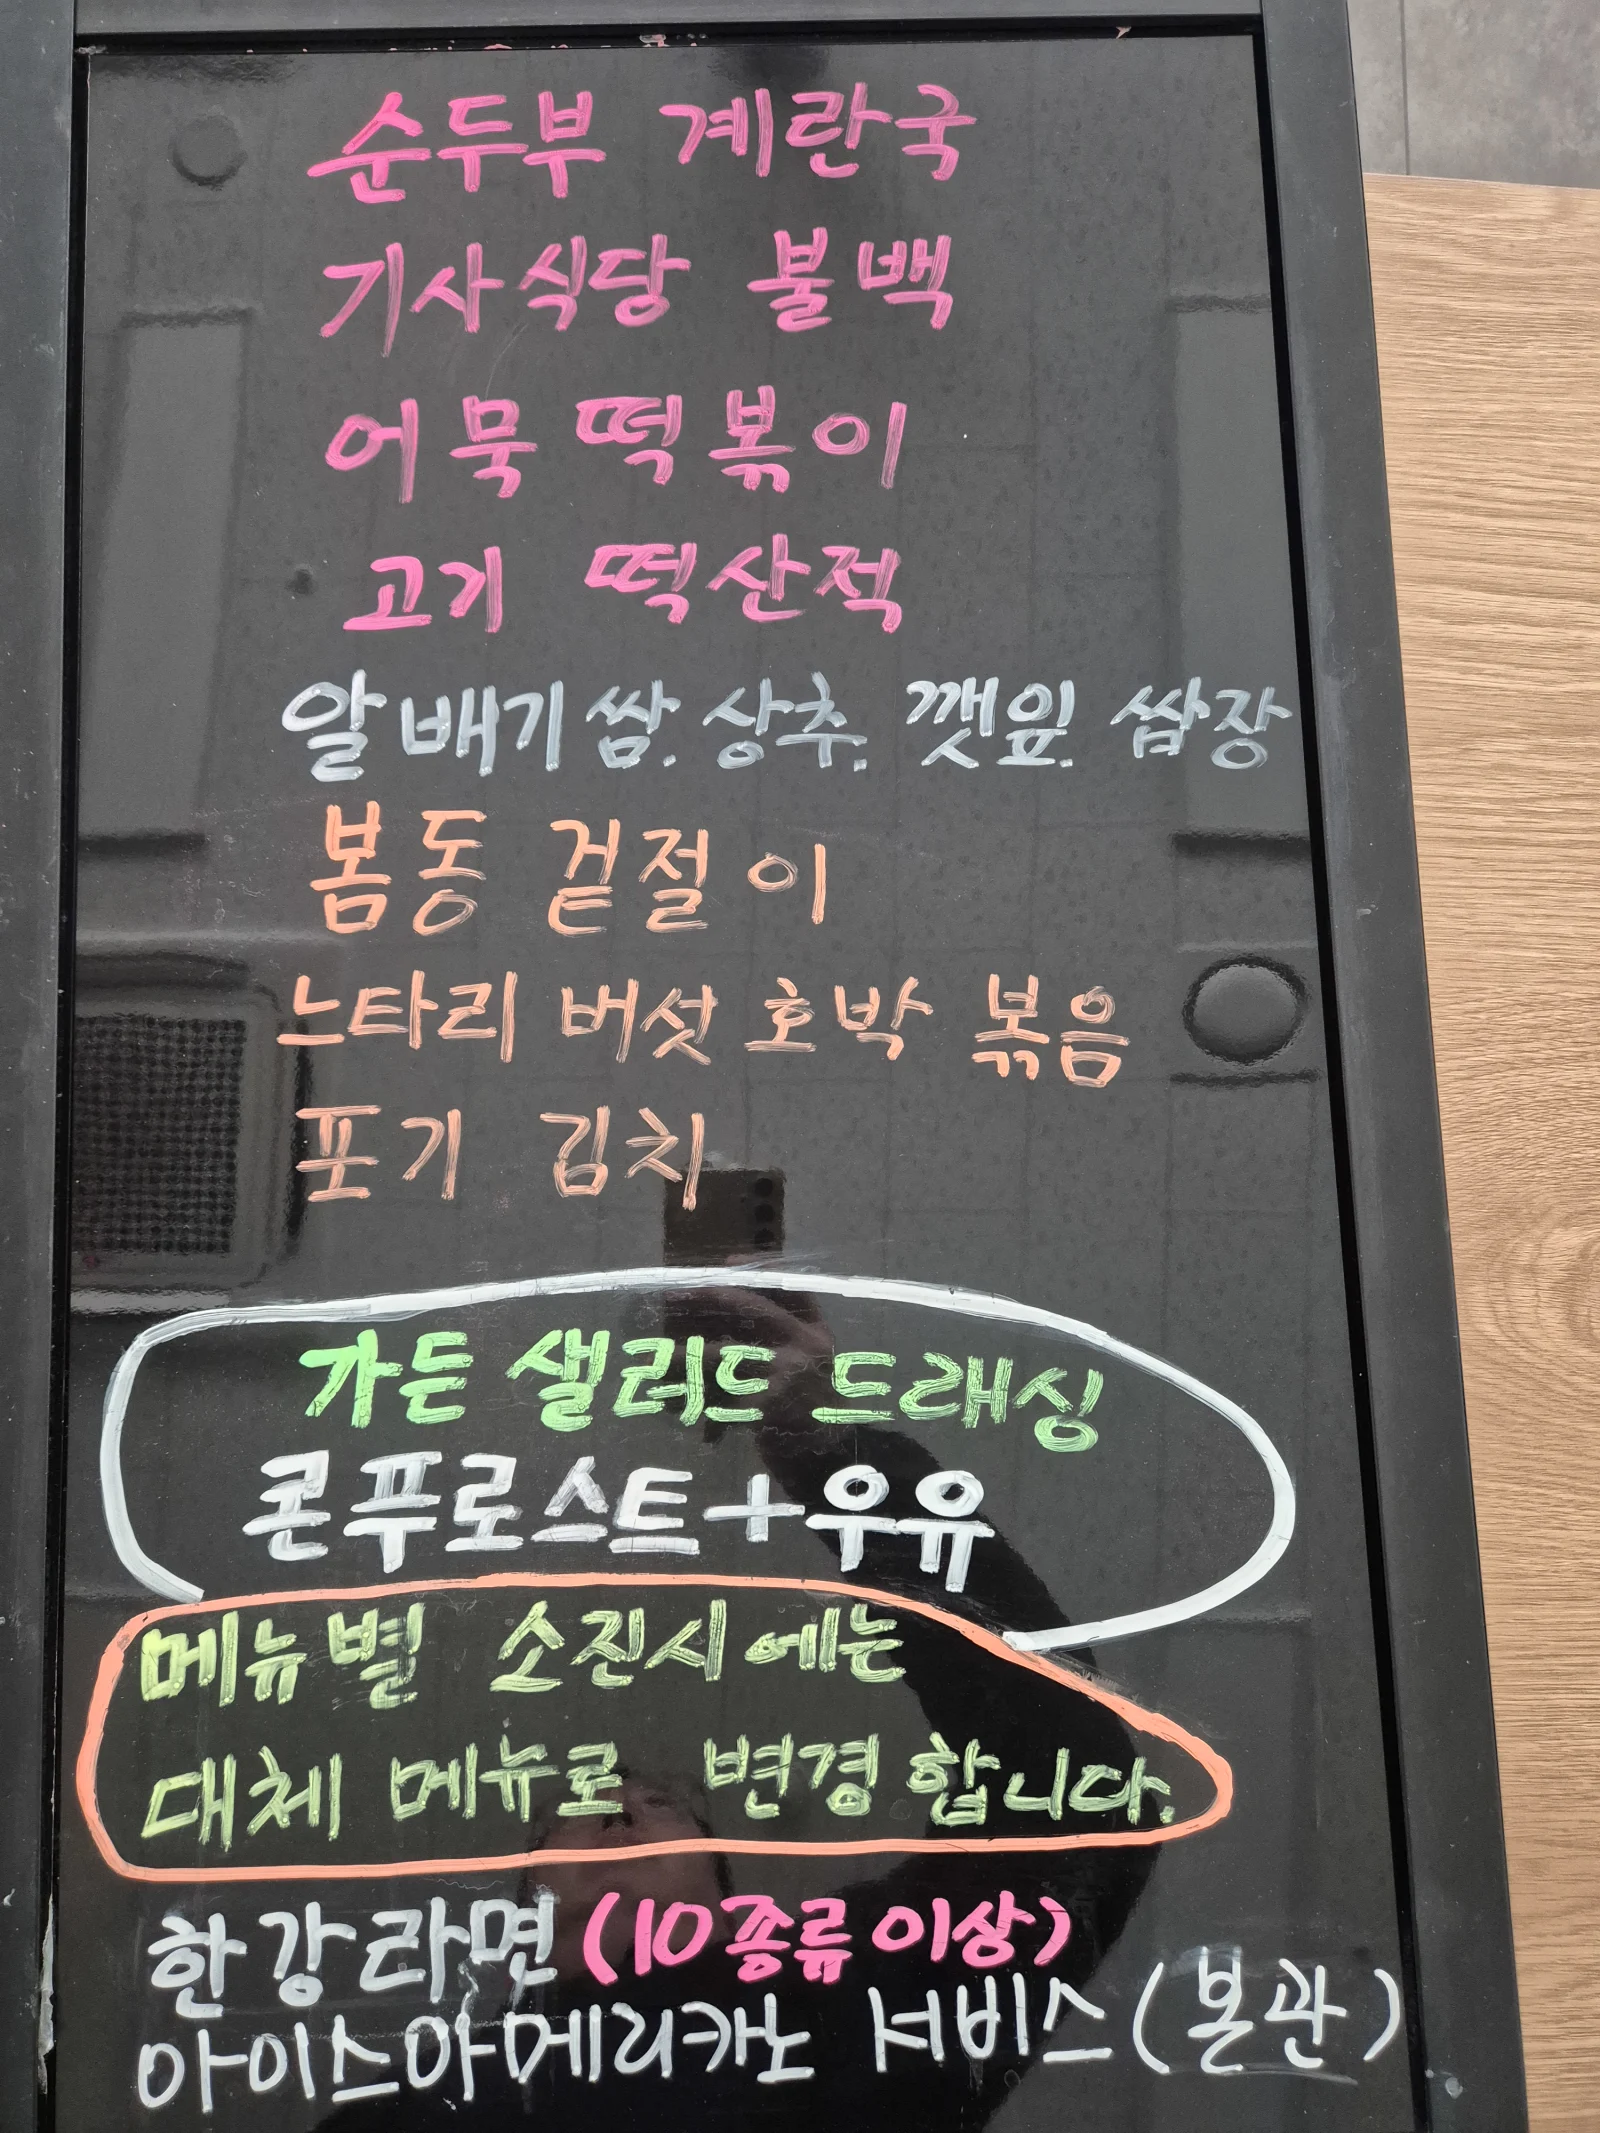 순두부 계란국
기사식당 불백
어묵 떡볶이
고기 떡산적
알배기쌈. 상추. 깻잎. 쌈장
봄동 겉절이
느타리 버섯 호박 볶음
포기 김치
가든 샐러드 드래싱
콘푸로스트+우유
메뉴별 소진시에는
대체 메뉴로 변경합니다.
한강라면 (10종류이상)
아이스아메리카노 서비스(본관)